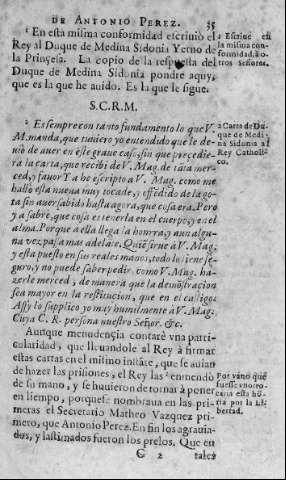 DE ANTONIO PEREZ. 35
En esta misma conformidad escriuió el
Rey al Duque de Medina Sidonia Yerno de
la Princesa. La copio de la respuesta del
Duque de Medina Sidonia pondre aquy,
que es la que he auido. Es la que le sigue.
S. C. R. M.
Es sempre con tanto fundamento lo que V.
M. manda, que
yo entendido que le de-
uio de auer en este graue caso, sin que precedie-
ra la carta, que recibi de V. Mag. de tāta mer-
ced, y fauor Y a he escripto a V. Mag. como me
hallò esta nueua muy tocado, y offēdido de la go-
ta sin auer sabido hasta agora, que cosa era. Pero
y a sabre, que cosa es tenerla en el cuerpo, y en el
alma. Porque a ella llega la honrra, y aun algu-
na vez passa mas adelāte. Quiē sirue à V. Mag.
y esta puesto en sus reales manos, todo lo tiene se-
guro, y no puede saber pedir, como V. Mag. ha-
zerle merced, de manera que la demostracion
sea mayor en la restitucion, que en el castigo.
Assy lo supplico yo muy humilmente à V. Mag.
Cuya C. R. persona nuestro Señor. &c.
Aunque menudençia contarè vna parti-
cularidad, que lleuandole al Rey à firmar
estas cartas en el mismo instāte, que se auian
de hazer las prisiones, el Rey las enmendò
de su mano, y se huuieron de tornar à poner
en tiempo, porque se nombraua en las pri-
meras el Secretario Matheo Vazquez pri-
mero, que Antonio Perez. En fin los agrauia-
dos, y lastimados fueron los presos. Que en
G 2 tales
a Escriue en
la misma con-
formidad, à o-
tros señores.
a Carta de Du-
que de Medi-
na Sidonia al
Rey Catholi-
co.
Por vano que
fuesse
esta hi-
toria por la li-
bertad.